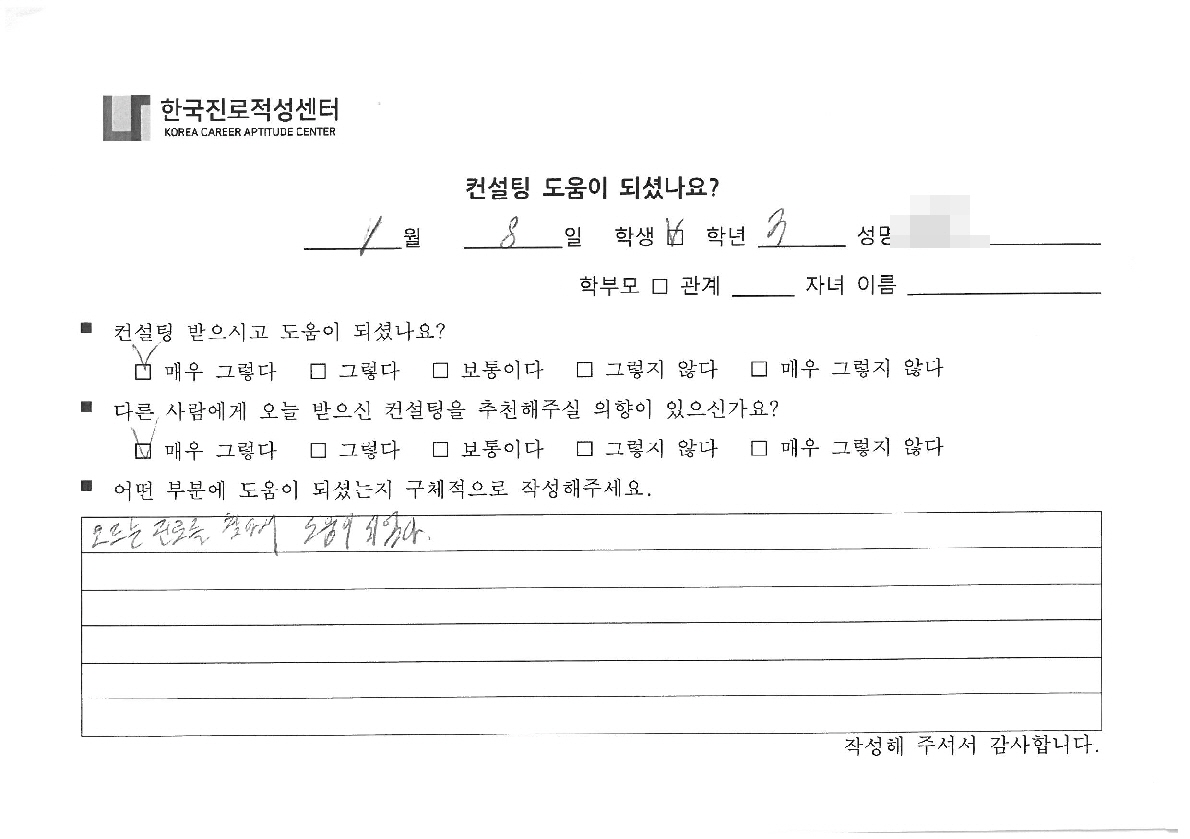 한국진로적성센터
KOREA CAREER APTITUDE CENTER
컨설팅 도움이 되셨나요?
1 월 8 일 학생 ☑ 학년 3 성명
학부모 □ 관계 자녀 이름
■ 컨설팅 받으시고 도움이 되셨나요?
☑ 매우 그렇다 □ 그렇다 □ 보통이다 □ 그렇지 않다 □ 매우 그렇지 않다
■ 다른 사람에게 오늘 받으신 컨설팅을 추천해주실 의향이 있으신가요?
☑ 매우 그렇다 □ 그렇다 □ 보통이다 □ 그렇지 않다 □ 매우 그렇지 않다
■ 어떤 부분에 도움이 되셨는지 구체적으로 작성해주세요.
진로를 도움이 되었다.
작성해 주셔서 감사합니다.